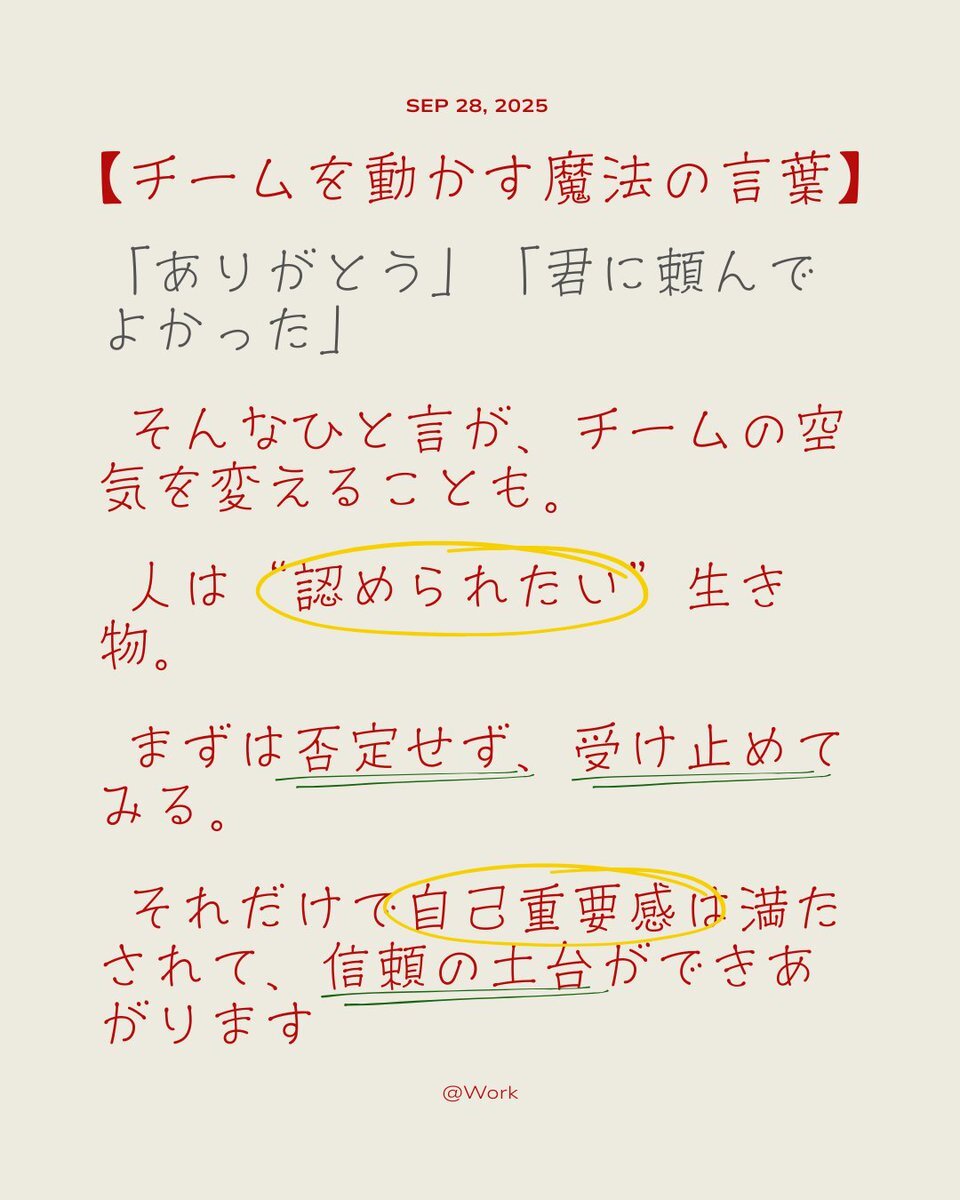 SEP 28, 2025
【チームを動かす魔法の言葉】
「ありがとう」「君に頼んで
よかった」
そんなひと言が、チームの空
気を変えることも。
人は “認められたい” 生き
物。
まずは否定せず、受け止めて
みる。
それだけで自己重要感は満た
されて、信頼の土台ができあ
がります
@Work